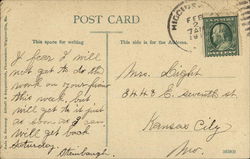 POST CARD
This space for writing
This side is for the Address.
HIGGINS
FEB
7 AM
I fear I will
not get to do the
work on your floor
this week, but
will get to it just
as soon as I can
will get back
Saturday.
Stembaugh.
Mrs. Light
3443 E. seventh st
Kansas City
Mo.